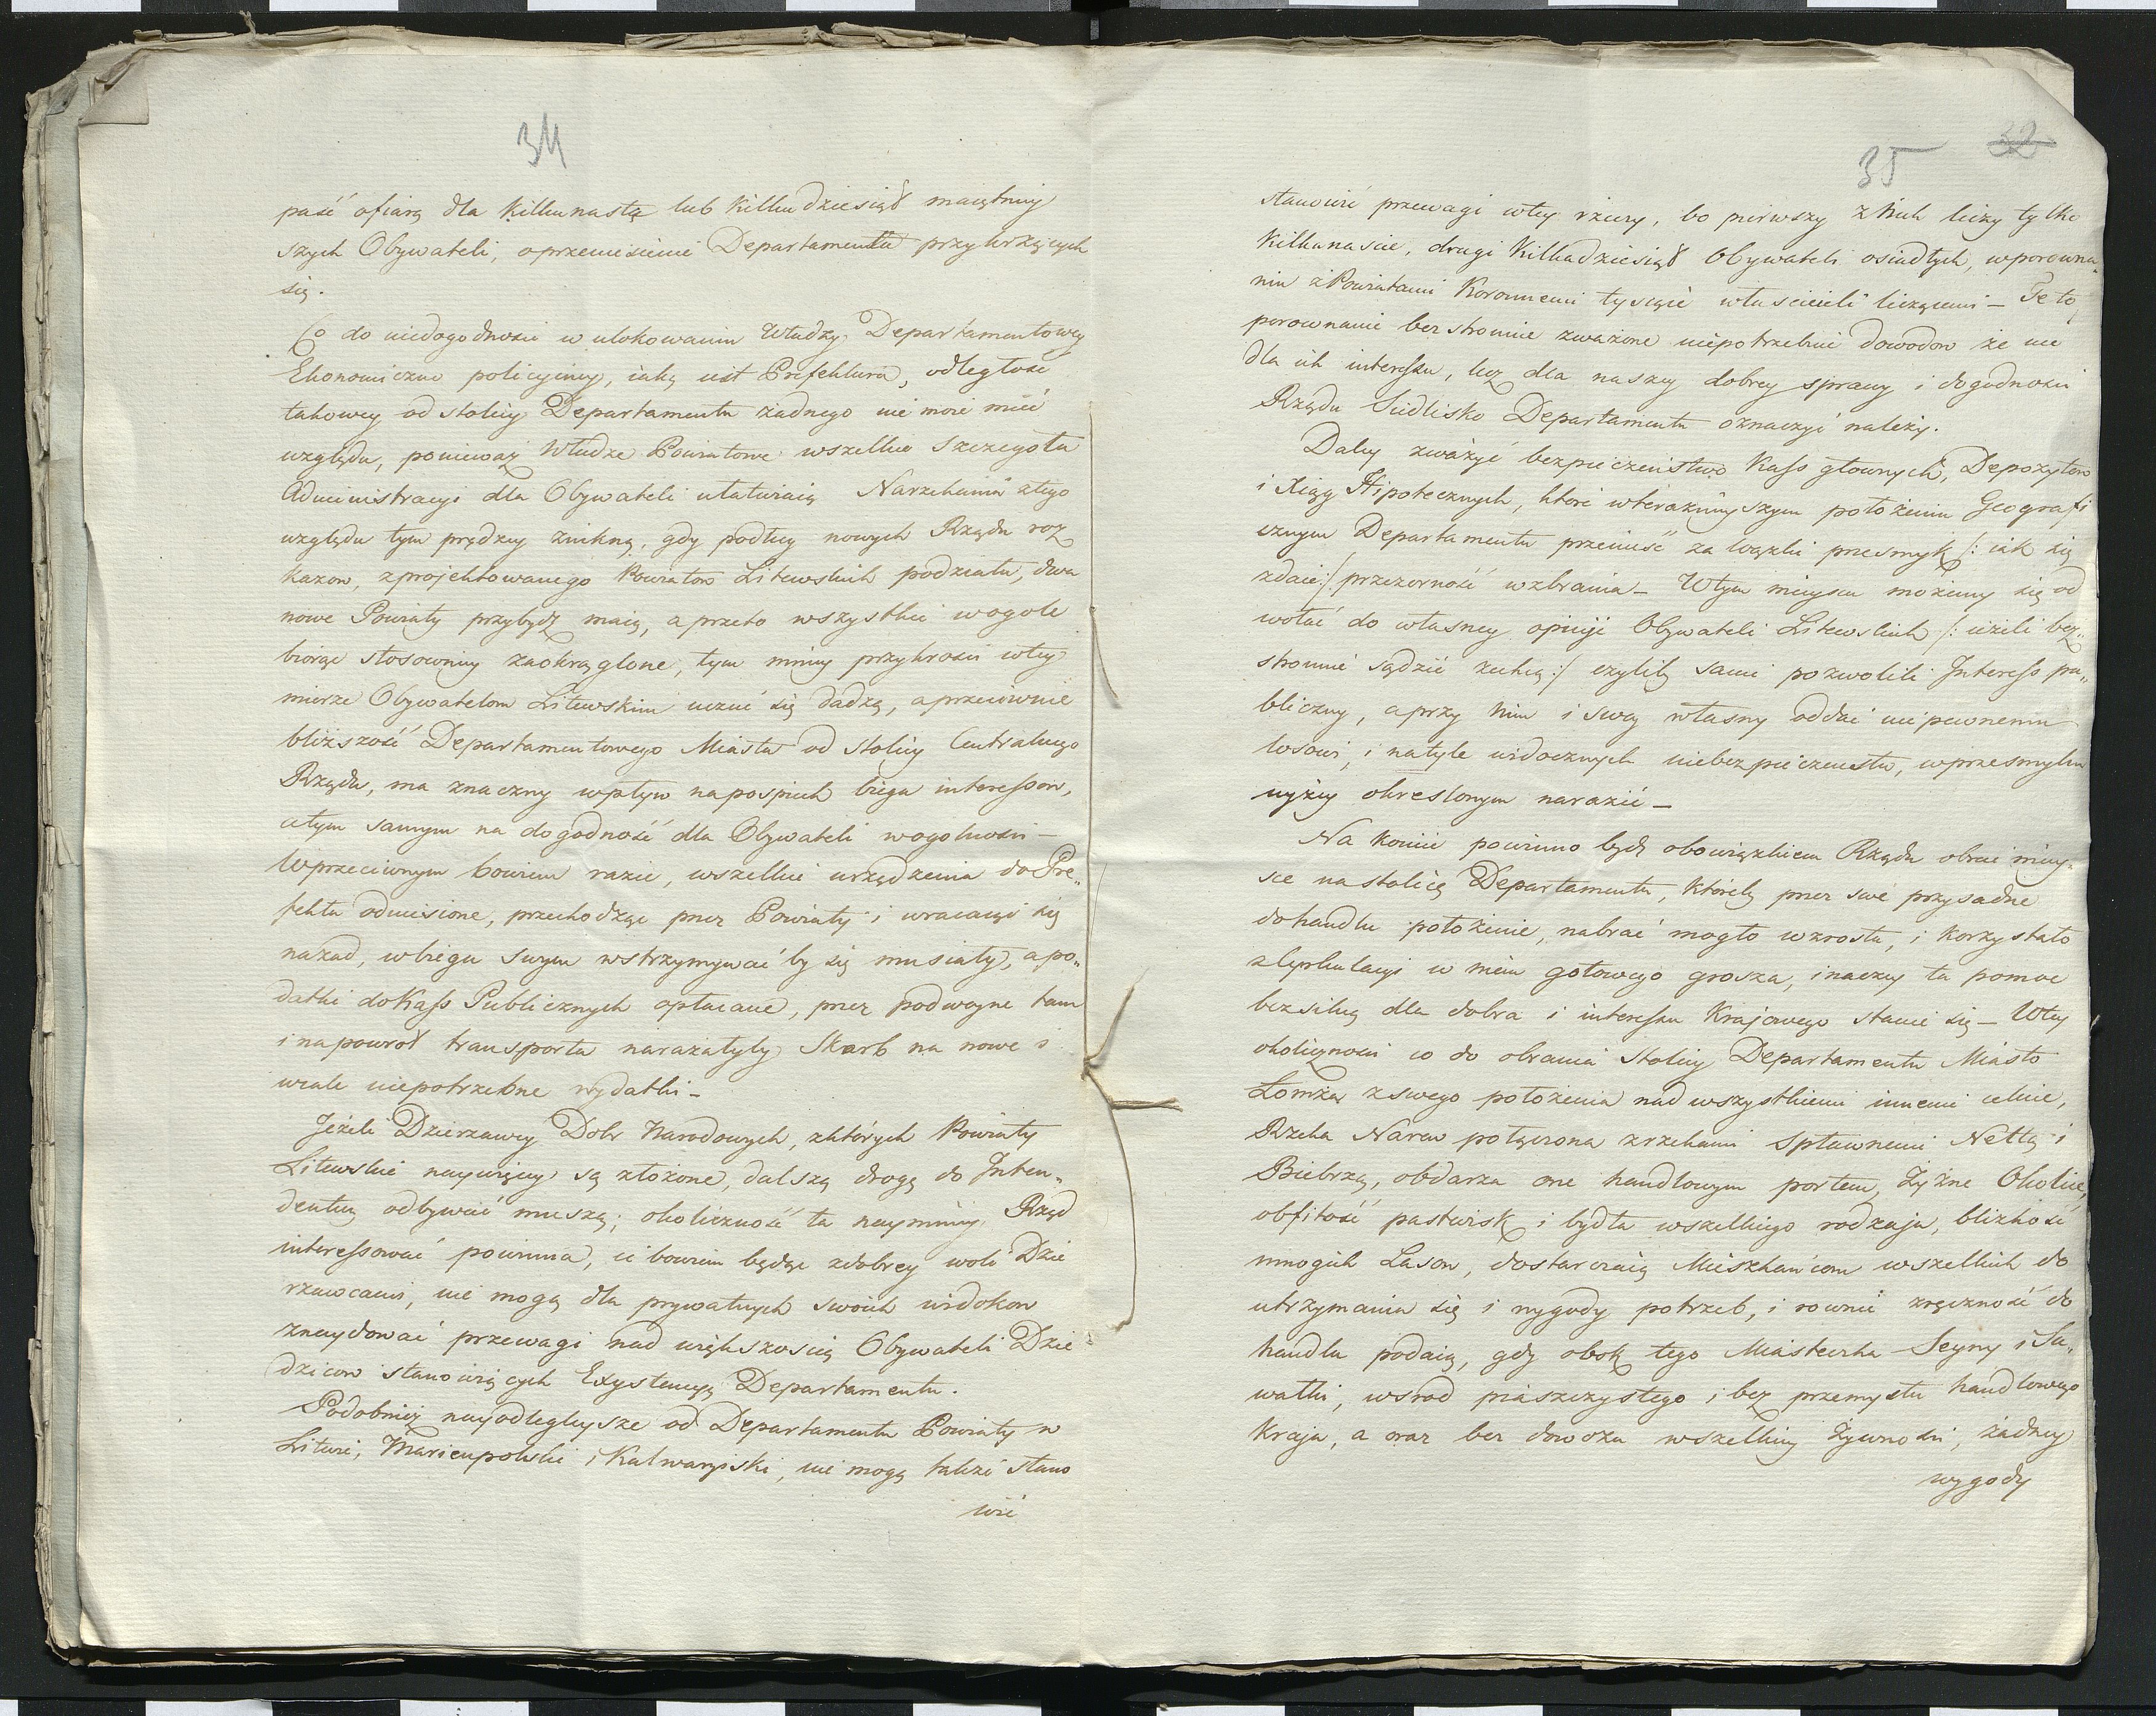 34
paść ofiarą dla kilkunastą lub kilkudziesiąt maiętniey
szych Obywateli, oprzeniesienie Departamentu przykrzących
się.
Co do niedogodności w ulokowaniu Władzy Departamentowey
Ekonomiczno policyiney, iaką iest Prefektura, odległość
takowey od stolicy Departamentu żadnego nie może mieć
względu, ponieważ Władze Powiatowe wszelkie szczegoła
Administracyi dla Obywateli ułatwiaią Narzekania ztego
względu tym prędzey znikną, gdy podług nowych Rządu roz
kazow, zprojektowanego Powiatow Litewskich podziału, dwa
nowe Powiaty przybydź maią, a przeto wszystkie wogole
biorąc stosowniey zaokrąglone, tym mniey przykrości wtey
mierze Obywatelom Litewskim uczuć się dadzą, aprzeciwnie
bliższość Departamentowego Miasta od stolicy Centralnego
Rządu, ma znaczny wpływ napospiech biegu interessow,
atym samym na dogodność dla Obywateli wogolności –
Wprzeciwnym bowiem razie, wszelkie urządzenia do Pre„
fekta odnięsione, przechodząc przez Powiaty i wracaiąc się
nazad, wbiegu swym wstrzymywać by się musiały, a po„
datki do Kass Publicznych opłacane, przez podwoyne tam
i napowrot transporta narażałyby Skarb na nowe i
wcale niepotrzebne wydatki –
Jeżeli Dzierżawcy Dobr Narodowych, zktórych Powiaty
Litewskie naywięcey są złożone, dalszą drogę do Inten„
dentury odbywać muszą; okoliczność ta naymniey Rząd
interessować powinna, ci bowiem będąc zdobrey woli Dzie
rżawcami, nie mogą dla prywatnych swoich widokow
znaydować przewagi nad większością Obywateli Dzie
dzicow stanowiących Exystencyą Departamentu.
Podobnież nayodległeysze od Departamentu Powiaty w
Litwie, Maryenpolski i Kalwaryiski, nie mogą także stano
wić
35 32
stanowić przewagi wtey rzeczy, bo pierwszy z Nich liczy tylko
Kilkunaście, drugi Kilkadziesiąt Obywateli osiadłych, wporowna„
niu z Powiatami Koronnemi tysiące właścicieli liczącemi – Te to
porownanie bezstronnie zważone niepotrzebuie dowodow że nie
dla ich interessu, lecz dla naszey dobrey sprawy i dogodności
Rządu Siedlisko Departamentu oznaczyć należy.
Daley zważyć bezpieczeństwo Kass głownych, Depozytow
i Xiąg Hipotecznych, które wteraznieyszym położeniu Geografi
cznym Departamentu przenieść za wązki przesmyk /: iak się
zdaie :/ przezorność wzbrania – Wtym mieyscu możemy się od
wołać do własney opinji Obywateli Litewskich /: ieżeli bez„
stronnie sądzić zechcą :/ czyliby sami pozwolili Interess pu„
bliczny, a przy Nim i swoy własny oddać niepewnemu
losowi, i natyle widocznych niebezpieczeństw, wprzesmyku
wyżey okreslonym narazić –
Na koniec powinno bydź obowiązkiem Rządu obrać miey„
sce na stolicę Departamentu, któreby przez swe przysadne
do handlu położenie, nabrać mogło wzrostu, i korzystało
z Cyrkulacyi w niem gotowego grosza, inaczey ta pomoc
bezsilną dla dobra i interessu Krajowego stanie się – Wtey
okoliczności co do obrania Stolicy Departamentu Miasto
Łomża zswego położenia nad wszystkiemi innemi celuie,
Rzeka Narew połączona zrzekami spławnemi Nettą i
Biebrzą, obdarza one handlowym portem, Żyżne Okolice,
obfitość pastwisk i bydła wszelkiego rodzaju, blizkość
mnogich Lasow, dostarczaią Mieszkańcom wszelkich do
utrzymania się i wygody potrzeb, i rownie zręczność do
handlu podaią, gdy obok tego Miasteczka Seyny i Su„
wałki, wsrod piaszczystego i bez przemysłu handlowego
Kraju, a oraz bez dowozu wszelkiey Żywności, żadney
wygody